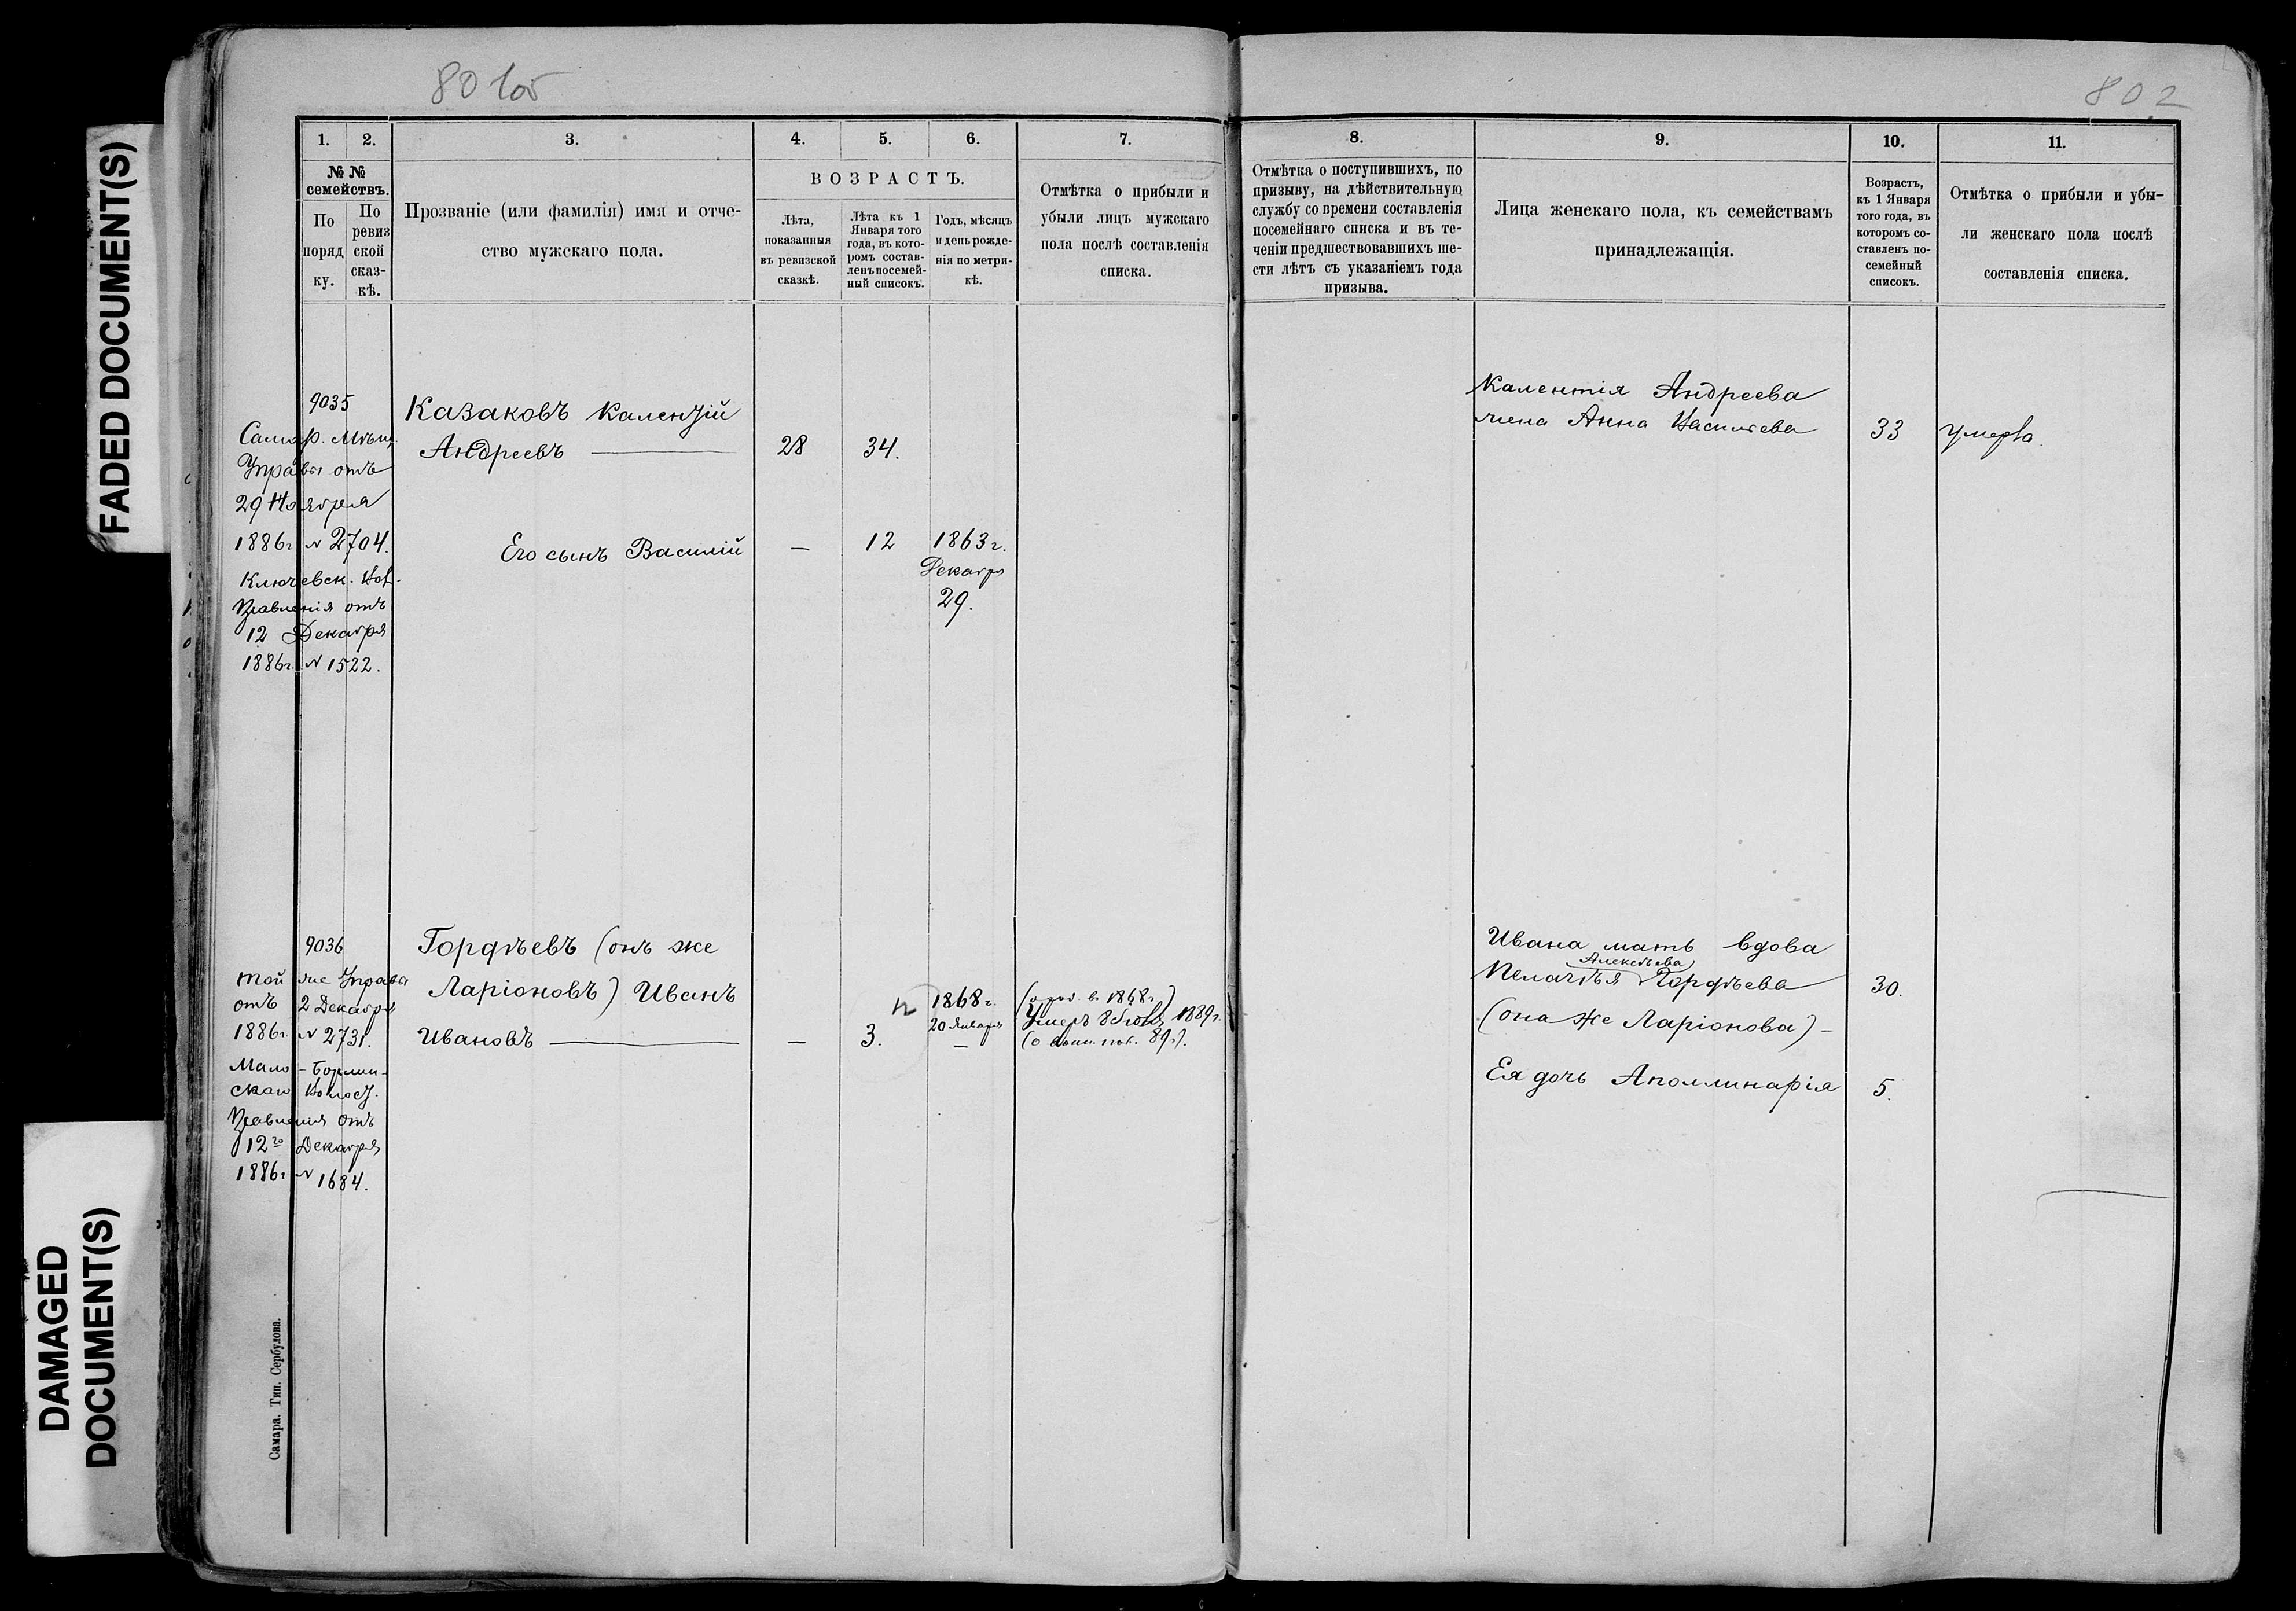 801об
802
FADED DOCUMENT(S)
DAMAGED
DOCUMENT(S)
1. 2. 3. 4. 5. 6. 7.
№ №
семействъ.
По
поряд
ку.
По
ревиз
ской
сказ-
кѣ.
Прозваніе (или фамилія) имя и отче-
ство мужскаго пола.
ВОЗРАСТЪ.
Лѣта,
показанныя
въ ревизской
сказкѣ.
Лѣта къ 1
Января того
года, въ кото-
ромъ состав-
ленъ посемей-
ный списокъ.
Годъ, мѣсяцъ
и день рожде-
нія по метри-
кѣ.
Отмѣтка о прибыли и
убыли лицъ мужскаго
пола послѣ составленія
списка.
8. 9. 10. 11.
Отмѣтка о поступившихъ, по
призыву, на дѣйствительную
службу со времени составленія
посемейнаго списка и въ те-
ченіи предшествовавшихъ ше-
сти лѣтъ съ указаніемъ года
призыва.
Лица женскаго пола, къ семействамъ
принадлежащія.
Возрастъ,
къ 1 Января
того года, въ
которомъ со-
ставленъ по-
семейный
списокъ.
Отмѣтка о прибыли и убы-
ли женскаго пола послѣ
составленія списка.
9035
Самар. Мѣщ.
Управы отъ
29 Ноября
1886г. № 2704.
Ключевск. Вол.
Правленія отъ
12 Декабря
1886г. № 1522.
Казаковъ Калентій
Андреевъ — 28 34.
Его сынъ Василій — 12 1863г.
Декабря
29.
Калентія Андреева
жена Анна Васильева 33 умерла.
9036
той же Управы
отъ 2 Декабря
1886г. № 2731.
Мало-Бормин-
скаго Волост.
Правленія отъ
12го Декабря
1886г. № 1684.
Гордѣевъ (онъ же
Ларіоновъ) Иванъ
Ивановъ — — 3.
1868г.
20 Января
—
Умеръ 8 1889г.
89г).
Ивана мать вдова
Алексѣева
Пелагѣя Гордѣева 30.
(она же Ларіонова) -
Ея дочь Аполлинарія 5.
Самара. Тип. Сербулова.